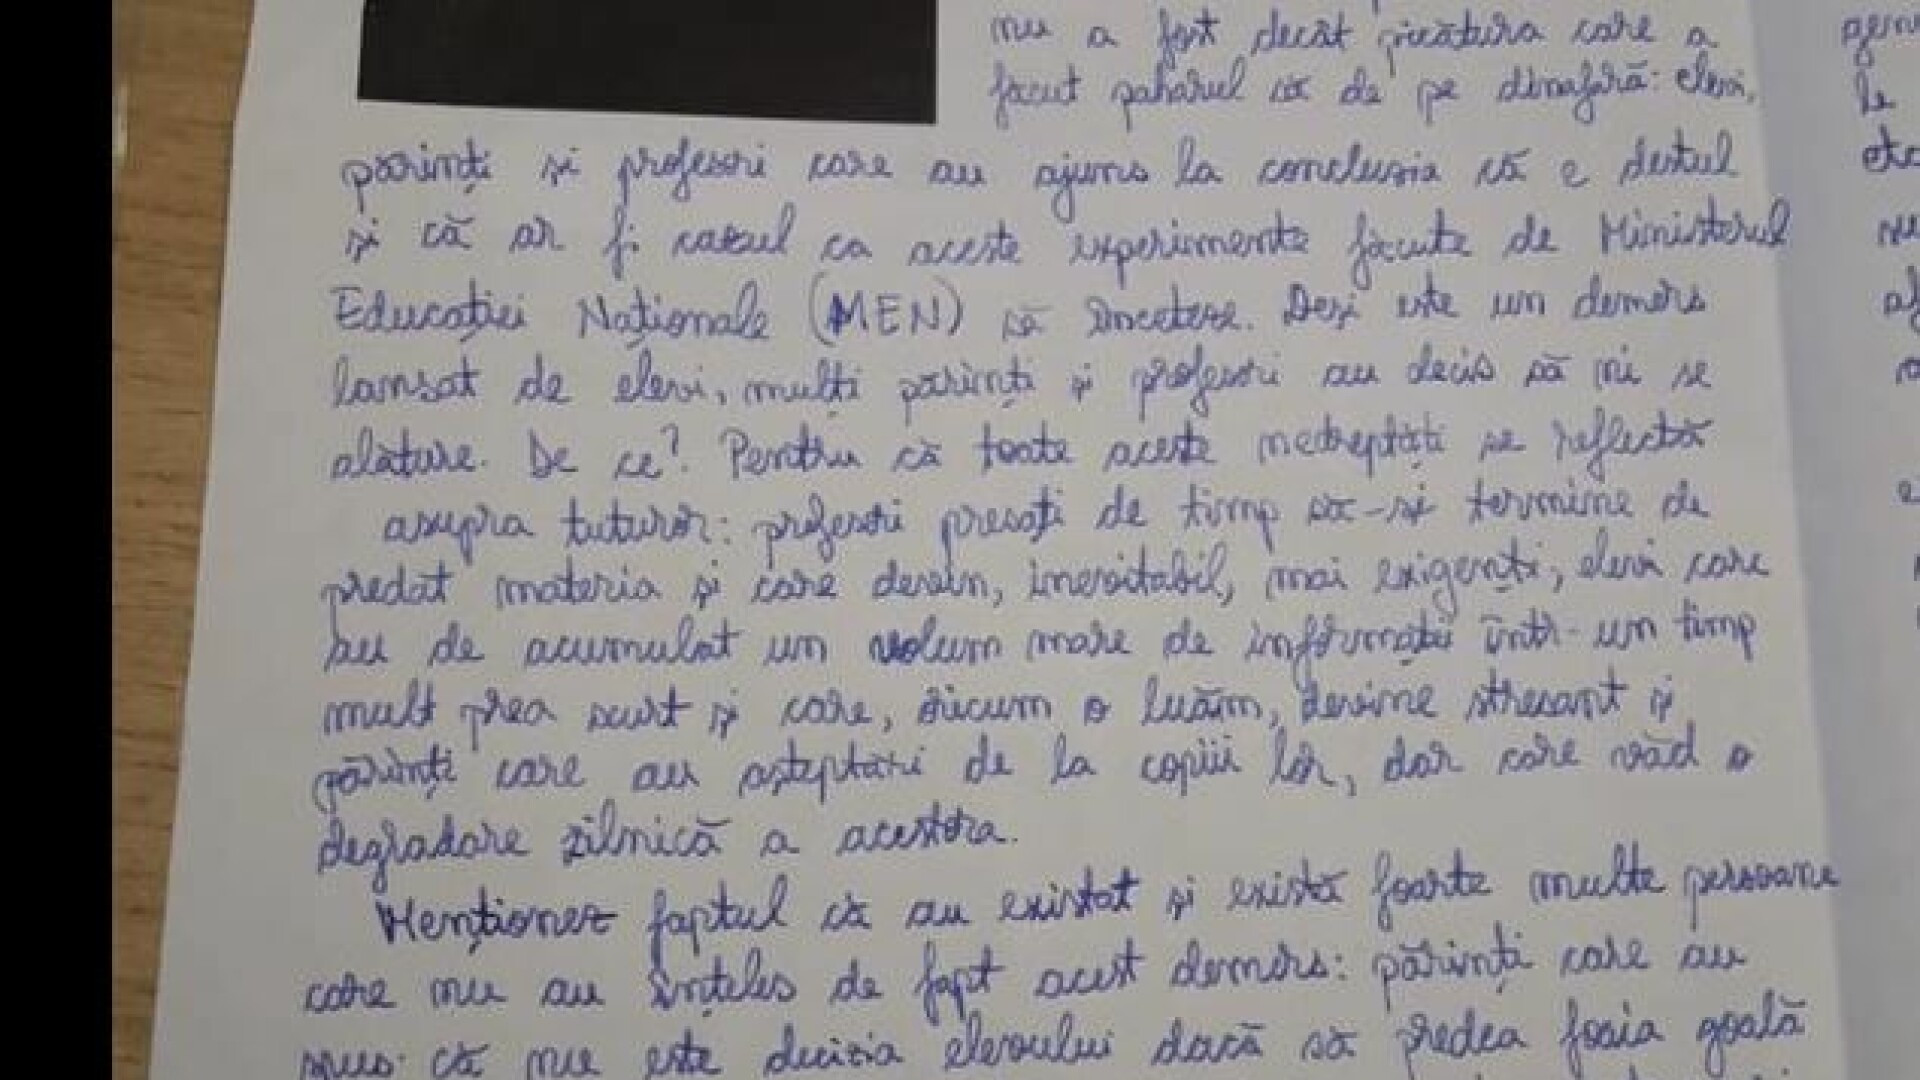 nu a fost decât picătura care a
făcut paharul să dea pe dinafară: elevi,
părinți și profesori care au ajuns la concluzia că e destul
și că ar fi cazul ca aceste experimente făcute de Ministerul
Educației Naționale (MEN) să înceteze. Deși este un demers
lansat de elevi, mulți părinți și profesori au decis să ni se
alăture. De ce? Pentru că toate aceste nedreptăți se reflectă
asupra tuturor: profesori presați de timp să-și termine de
predat materia și care devin, inevitabil, mai exigenți; elevi care
au de acumulat un volum mare de informații într-un timp
mult prea scurt și care, oricum o luăm, devine stresant și
părinți care au așteptări de la copiii lor, dar care văd o
degradare zilnică a acestora.
Menționez faptul că au existat și există foarte multe persoane
care nu au înțeles de fapt acest demers: părinți care au
spus că nu este decizia elevului dacă să predea foaia goală
le
etc